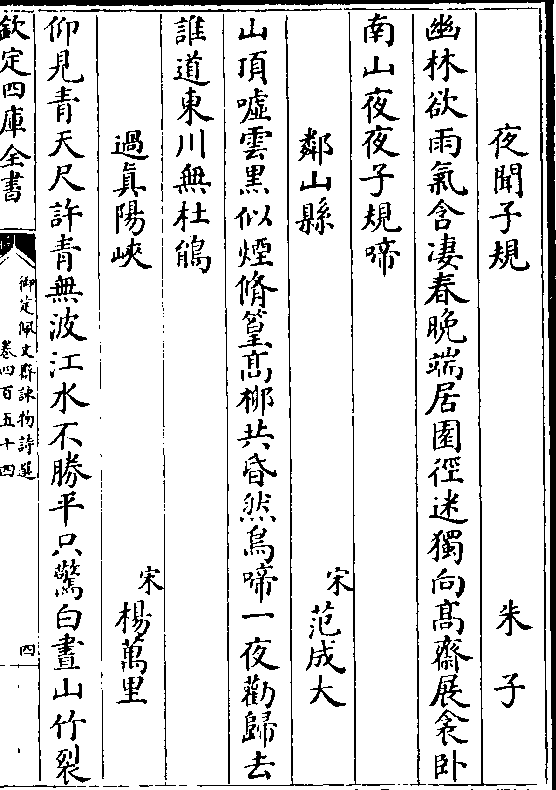 夜聞子規　朱子
幽林欲雨氣含凄春晚端居園徑迷獨向髙齋展衾卧
南山夜夜子規啼
鄰山縣　宋范成大
山頂嘘雲黒似煙脩篁髙栁共昏然鳥啼一夜勸歸去
誰道東川無杜鵑
過真陽峽　宋楊萬里
仰見青天尺許青無波江水不勝平只驚白晝山竹裂
欽定四庫全書
御定佩文齋詠物詩選
卷四百五十四
四